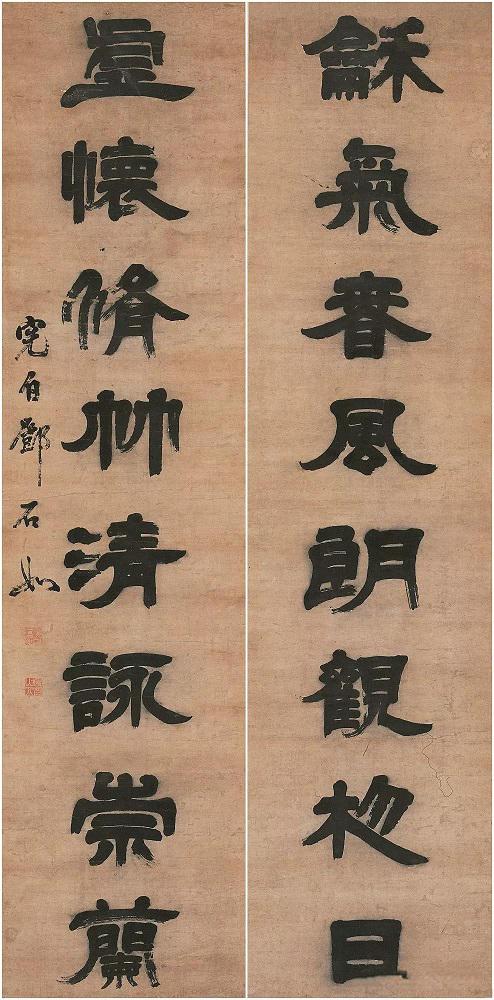 龢氣春風朗觀林日
虛懷脩竹清詠崇蘭
完白鄧石如